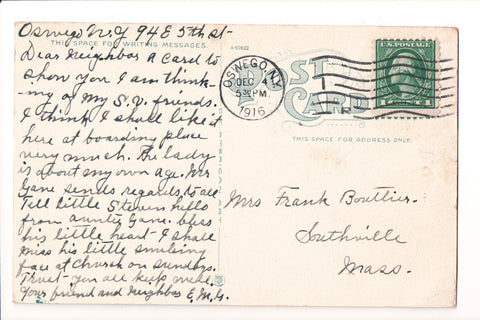 Oswego N.Y 94 E 5th st-
THIS SPACE FOR WRITING MESSAGES.
A-67622
Dear Neighbor a card to
show you I am think-
-ing of my S.V. friends.
I think I shall like it
here at boarding place
very much. The lady
is about my own age. Mrs
Gane sends regards to all
Tell little Steven hello
from auntie Gane. bless
his little heart - I shall
miss his little smiling
face at Church on sundays.
Trust - you all keep well.
Your friend and Neighbor E.M.G.
POST CARD
OSWEGO, N.Y.
DEC 4
5 30 PM
1916
U.S. POSTAGE
1
THIS SPACE FOR ADDRESS ONLY.
Mrs Frank Bouttier.
Southville
Mass.